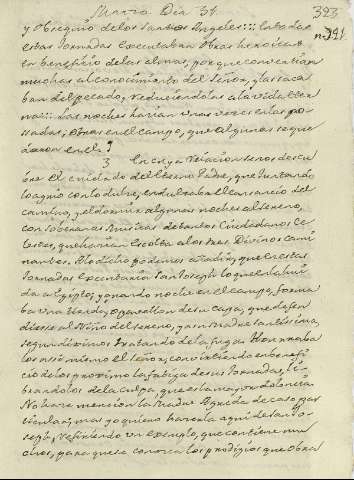 Marzo Dia 31.
323
y Obsequio de los Santos Angeles::: En todas
estas Jornadas executaban Obras heroicas
en beneficio de las almas, por que convertian
muchas al conocimiento del Señor, y las saca
ban del pecado, reduciendolas a la vida Eter
na::: Las noches hacian unas veces en las po
sadas, otras en el campo, que algunas se que
daron en el.
3 En cuya relacion se nos descu
bre El cuidado del Eterno Padre, que juntando
lo agrio con lo dulce, endulzaba El cansancio del
camino, y el dormir algunas noches al sereno,
con soberanas Musicas de tantos Ciudadanos Ce
lestes, que hacian Escolta a los tres Divinos cami
nantes. A lo dicho podemos añadir, que en estas
Jornadas Executaria San Joseph lo que en la hui
da a Egipto, y quando noche en el campo, forma
ba una tienda, o pavellon de su capa, que defen
diesse al Niño del sereno, y a su Madre Santissima,
segun diximos tratando de la fuga. Honrraba
los assi mismo el Señor, convirtiendo en benefi
cio de los proximos la fatiga de sus Jornadas, li
brandolos de la culpa, que es la mayor dolencia.
No hace mencion la Madre Agreda de caso par
ticular, mas yo quiero hacerla aqui de San Jo
seph, refiriendo un exemplo, que contiene mu
chos, para que se conozca los prodigios que obra